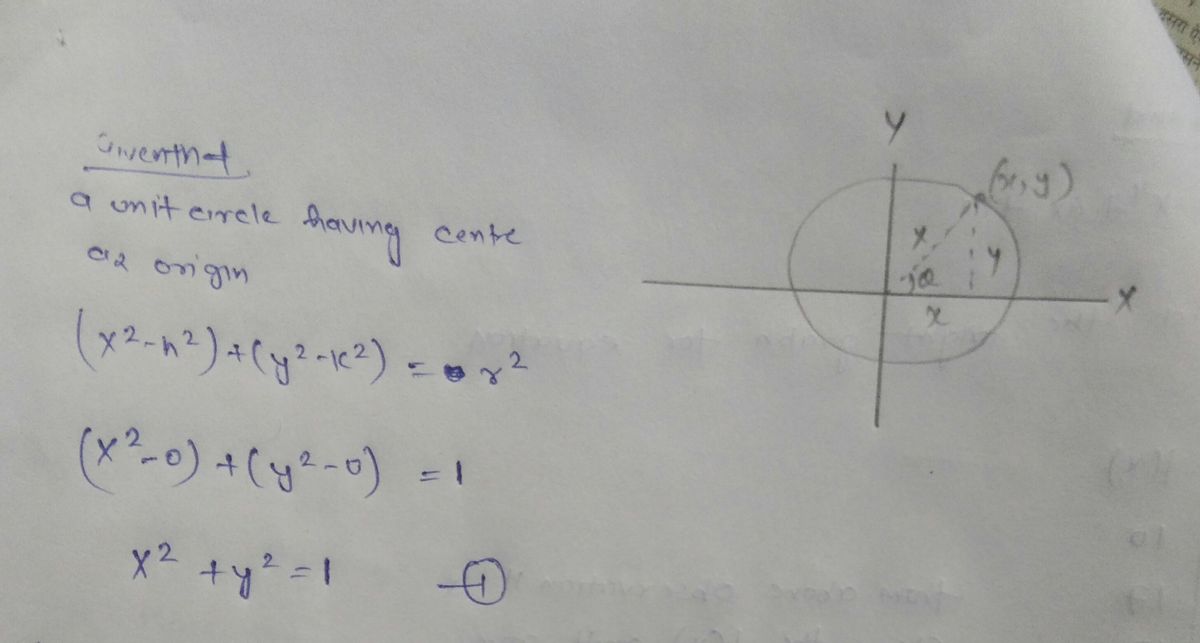 Giventhat
a unit circle having centre
as origin
(x²-h²)+(y²-k²) = r²
(x²-0)+(y²-0) = 1
x² + y² = 1 —①
Y
(x, y)
y
x
X